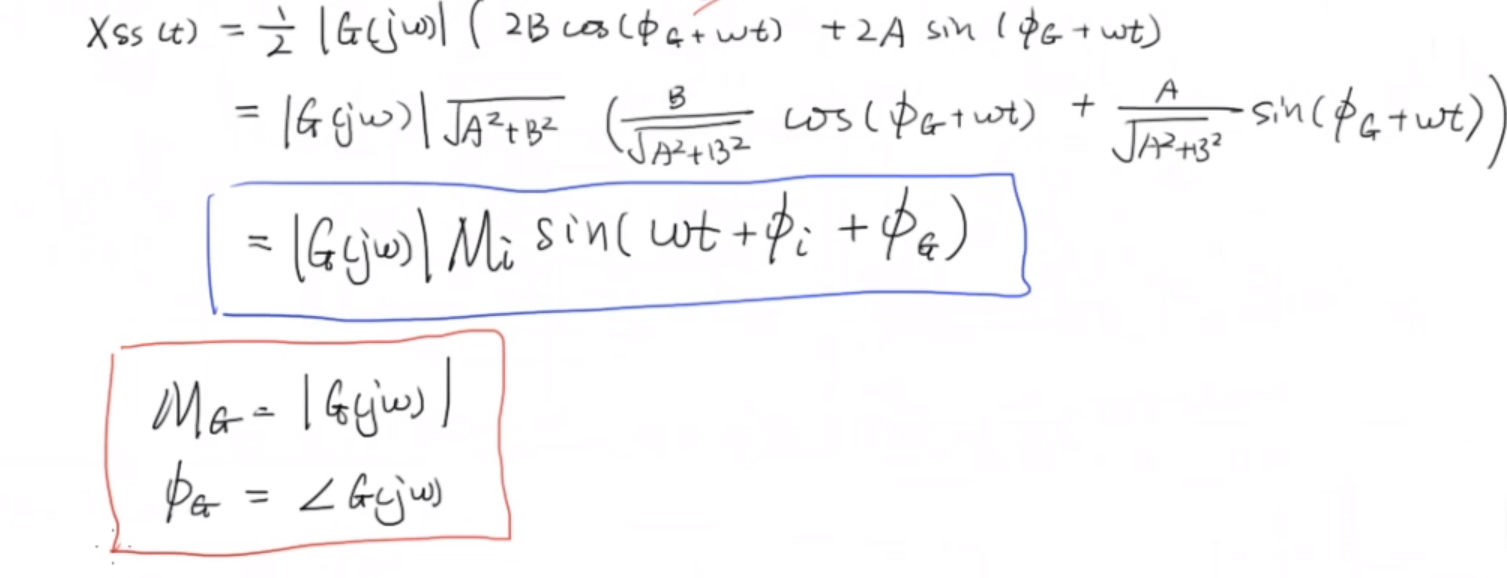 Xss(t) = 1/2 |G(jω)| ( 2B cos(ϕG+ωt) + 2A sin(ϕG+ωt)
= |G(jω)| √A²+B² (B/√A²+B² cos(ϕG+ωt) + A/√A²+B² sin(ϕG+ωt))
= |G(jω)| Mi sin(ωt+ϕi+ϕG)
MG = |G(jω)|
ϕG = ∠G(jω)